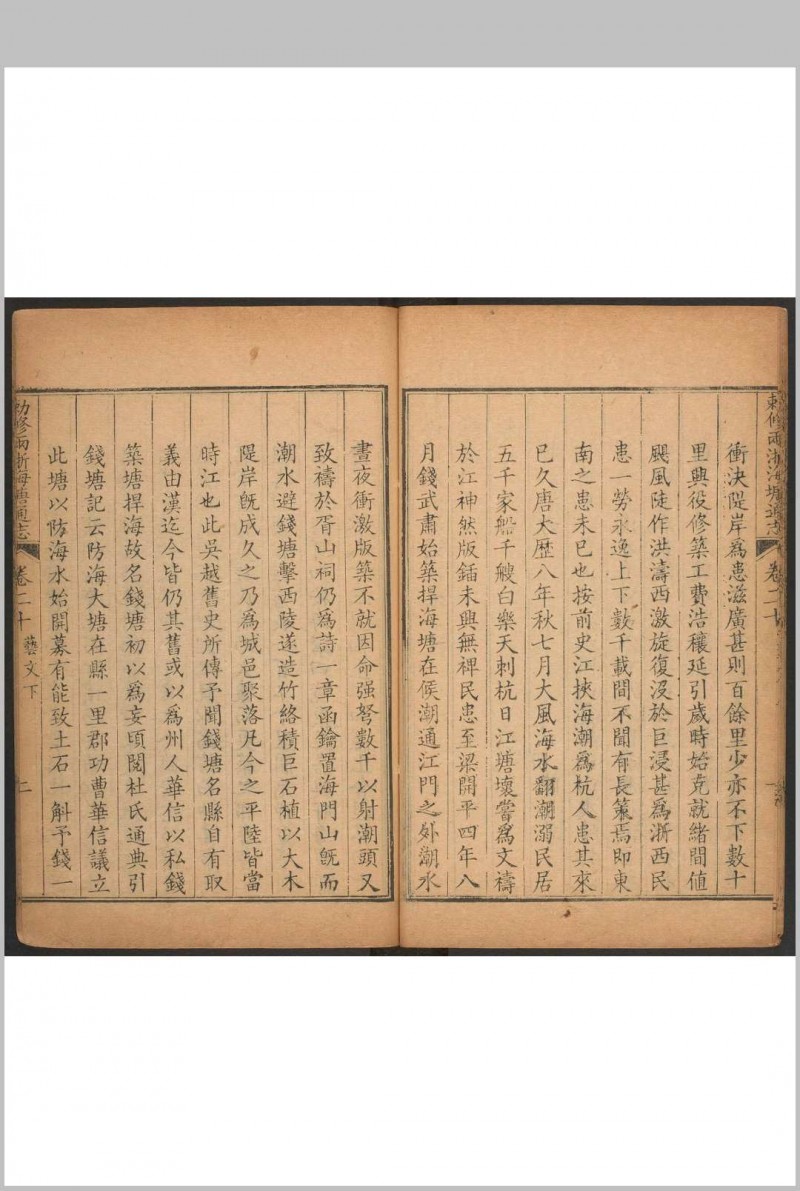 衝決隄岸爲患滋廣甚則百餘里少亦不下數十
里興役修築工費浩穰延引歲時始克就緒間值
颶風陡作洪濤西激旋復沒於巨浸甚爲浙西民
患一勞永逸上下數千載間不聞有長策焉即東
南之患未已也按前史江挾海潮爲杭人患其來
已久唐大歷八年秋七月大風海水翻潮溺民居
五千家船千艘白樂天刺杭日江塘壞嘗爲文禱
於江神然版鍤未興無裨民患至梁開平四年八
月錢武肅始築捍海塘在候潮通江門之外潮水
晝夜衝激版築不就因命强弩數千以射潮頭又
致禱於胥山祠仍爲詩一章函鑰置海門山旣而
潮水避錢塘擊西陵遂造竹絡積巨石植以大木
隄岸旣成久之乃爲城邑聚落凡今之平陸皆當
時江也此吳越舊史所傳予聞錢塘名縣自有取
義由漢迄今皆仍其舊或以爲州人華信以私錢
築塘捍海故名錢塘初以爲妄頃閱杜氏通典引
錢塘記云防海大塘在縣一里郡功曹華信議立
此塘以防海水始開募有能致土石一斛予錢一
勅修兩浙海塘通志 卷二十 藝文下 二